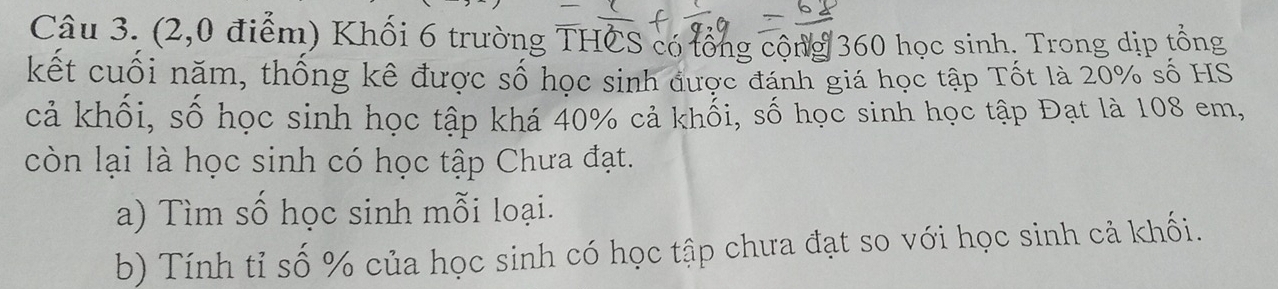 Câu 3. (2,0 điểm) Khối 6 trường THCS có tổng cộng 360 học sinh. Trong dịp tổng
kết cuối năm, thống kê được số học sinh được đánh giá học tập Tốt là 20% số HS
cả khối, số học sinh học tập khá 40% cả khối, số học sinh học tập Đạt là 108 em,
còn lại là học sinh có học tập Chưa đạt.
a) Tìm số học sinh mỗi loại.
b) Tính tỉ số % của học sinh có học tập chưa đạt so với học sinh cả khối.